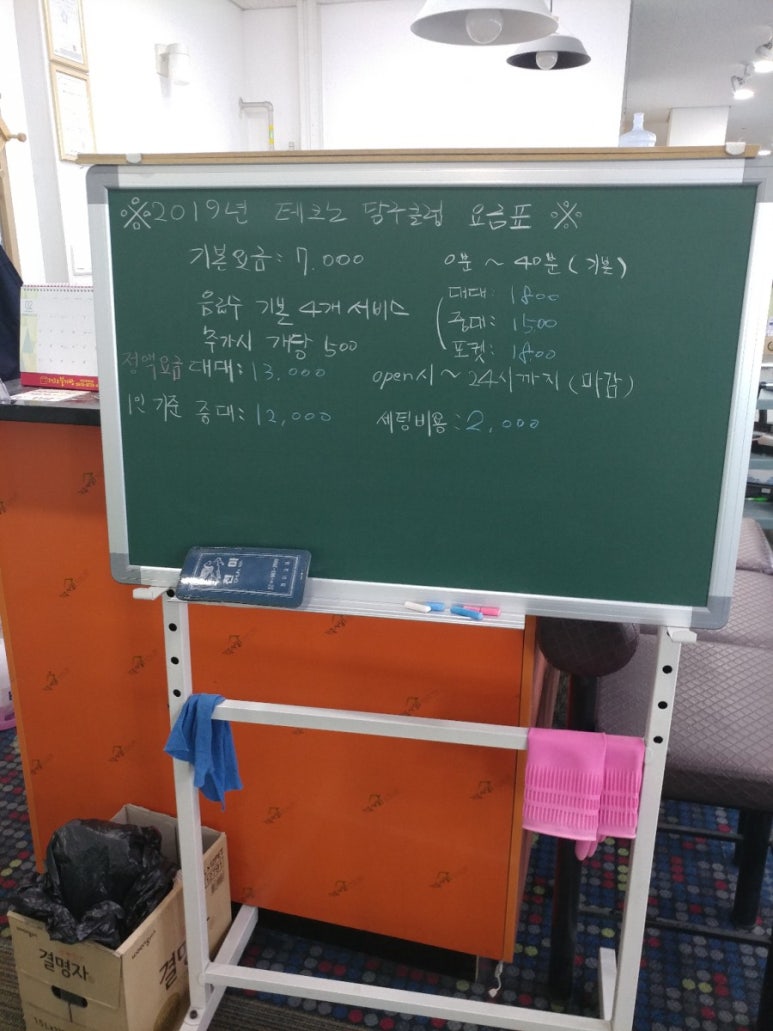 ※2019년 테크노 당구클럽 요금표 ※
기본요금: 7.000
0분 ~ 40분 (기본)
음료수 기본 4개 서비스
추가시 개당 500
대대: 1800
중대: 1500
포켓: 1800
정액요금 대대: 13.000
open시 ~ 24시까지 (마감)
1인 기준 중대: 12,000
세팅비용: 2,000
결명자